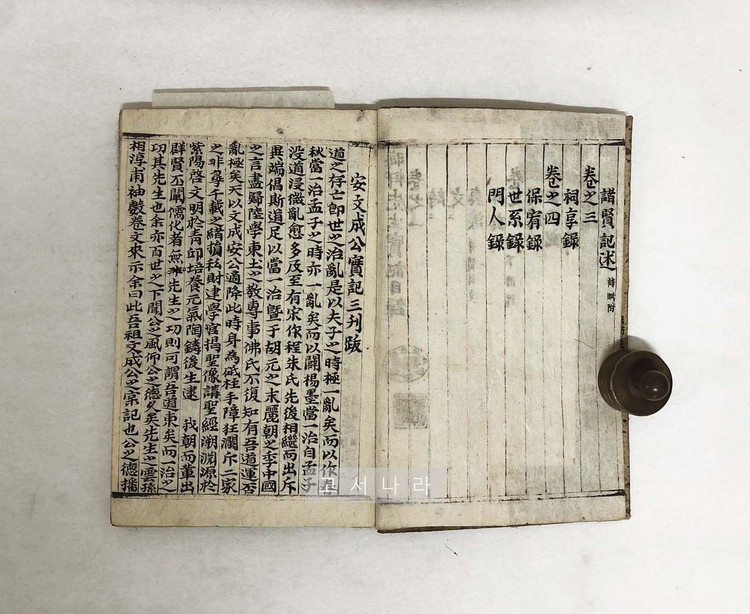 諸賢記述 詩賦附
卷之三
祠享錄
卷之四
保宥錄
世系錄
門人錄
安文成公實記三刊跋
道之存亡卽世之治亂是以夫子之時極一亂矣而以作春
秋當一治孟子之時亦一亂矣而以闢楊墨當一治自孟子
沒道浸微亂愈多及至有宋作程朱氏先後相繼而出斥
異端倡斯道足以當一治曁于胡元之末麗朝之季中國
之言盡歸陸學東土之敎專事佛氏不復知有吾道運否
亂極矣天以文成安公適降此時身為砥柱手障狂瀾斥二家
之非尋千載之緖捐私財建學宮揭聖像講聖經溯淵源於
紫陽啓文明於靑邱培養元氣陶鑄後生逮 我朝而輩出
群賢丕闡儒化者無非先生之功則可謂吾道東矣而一治之
功其先生也余亦百世之下聞公之風仰公之德久矣先生之雲孫
相淳甫袖數卷文來示余曰此吾祖文成公之實記也公之德播
고서나라